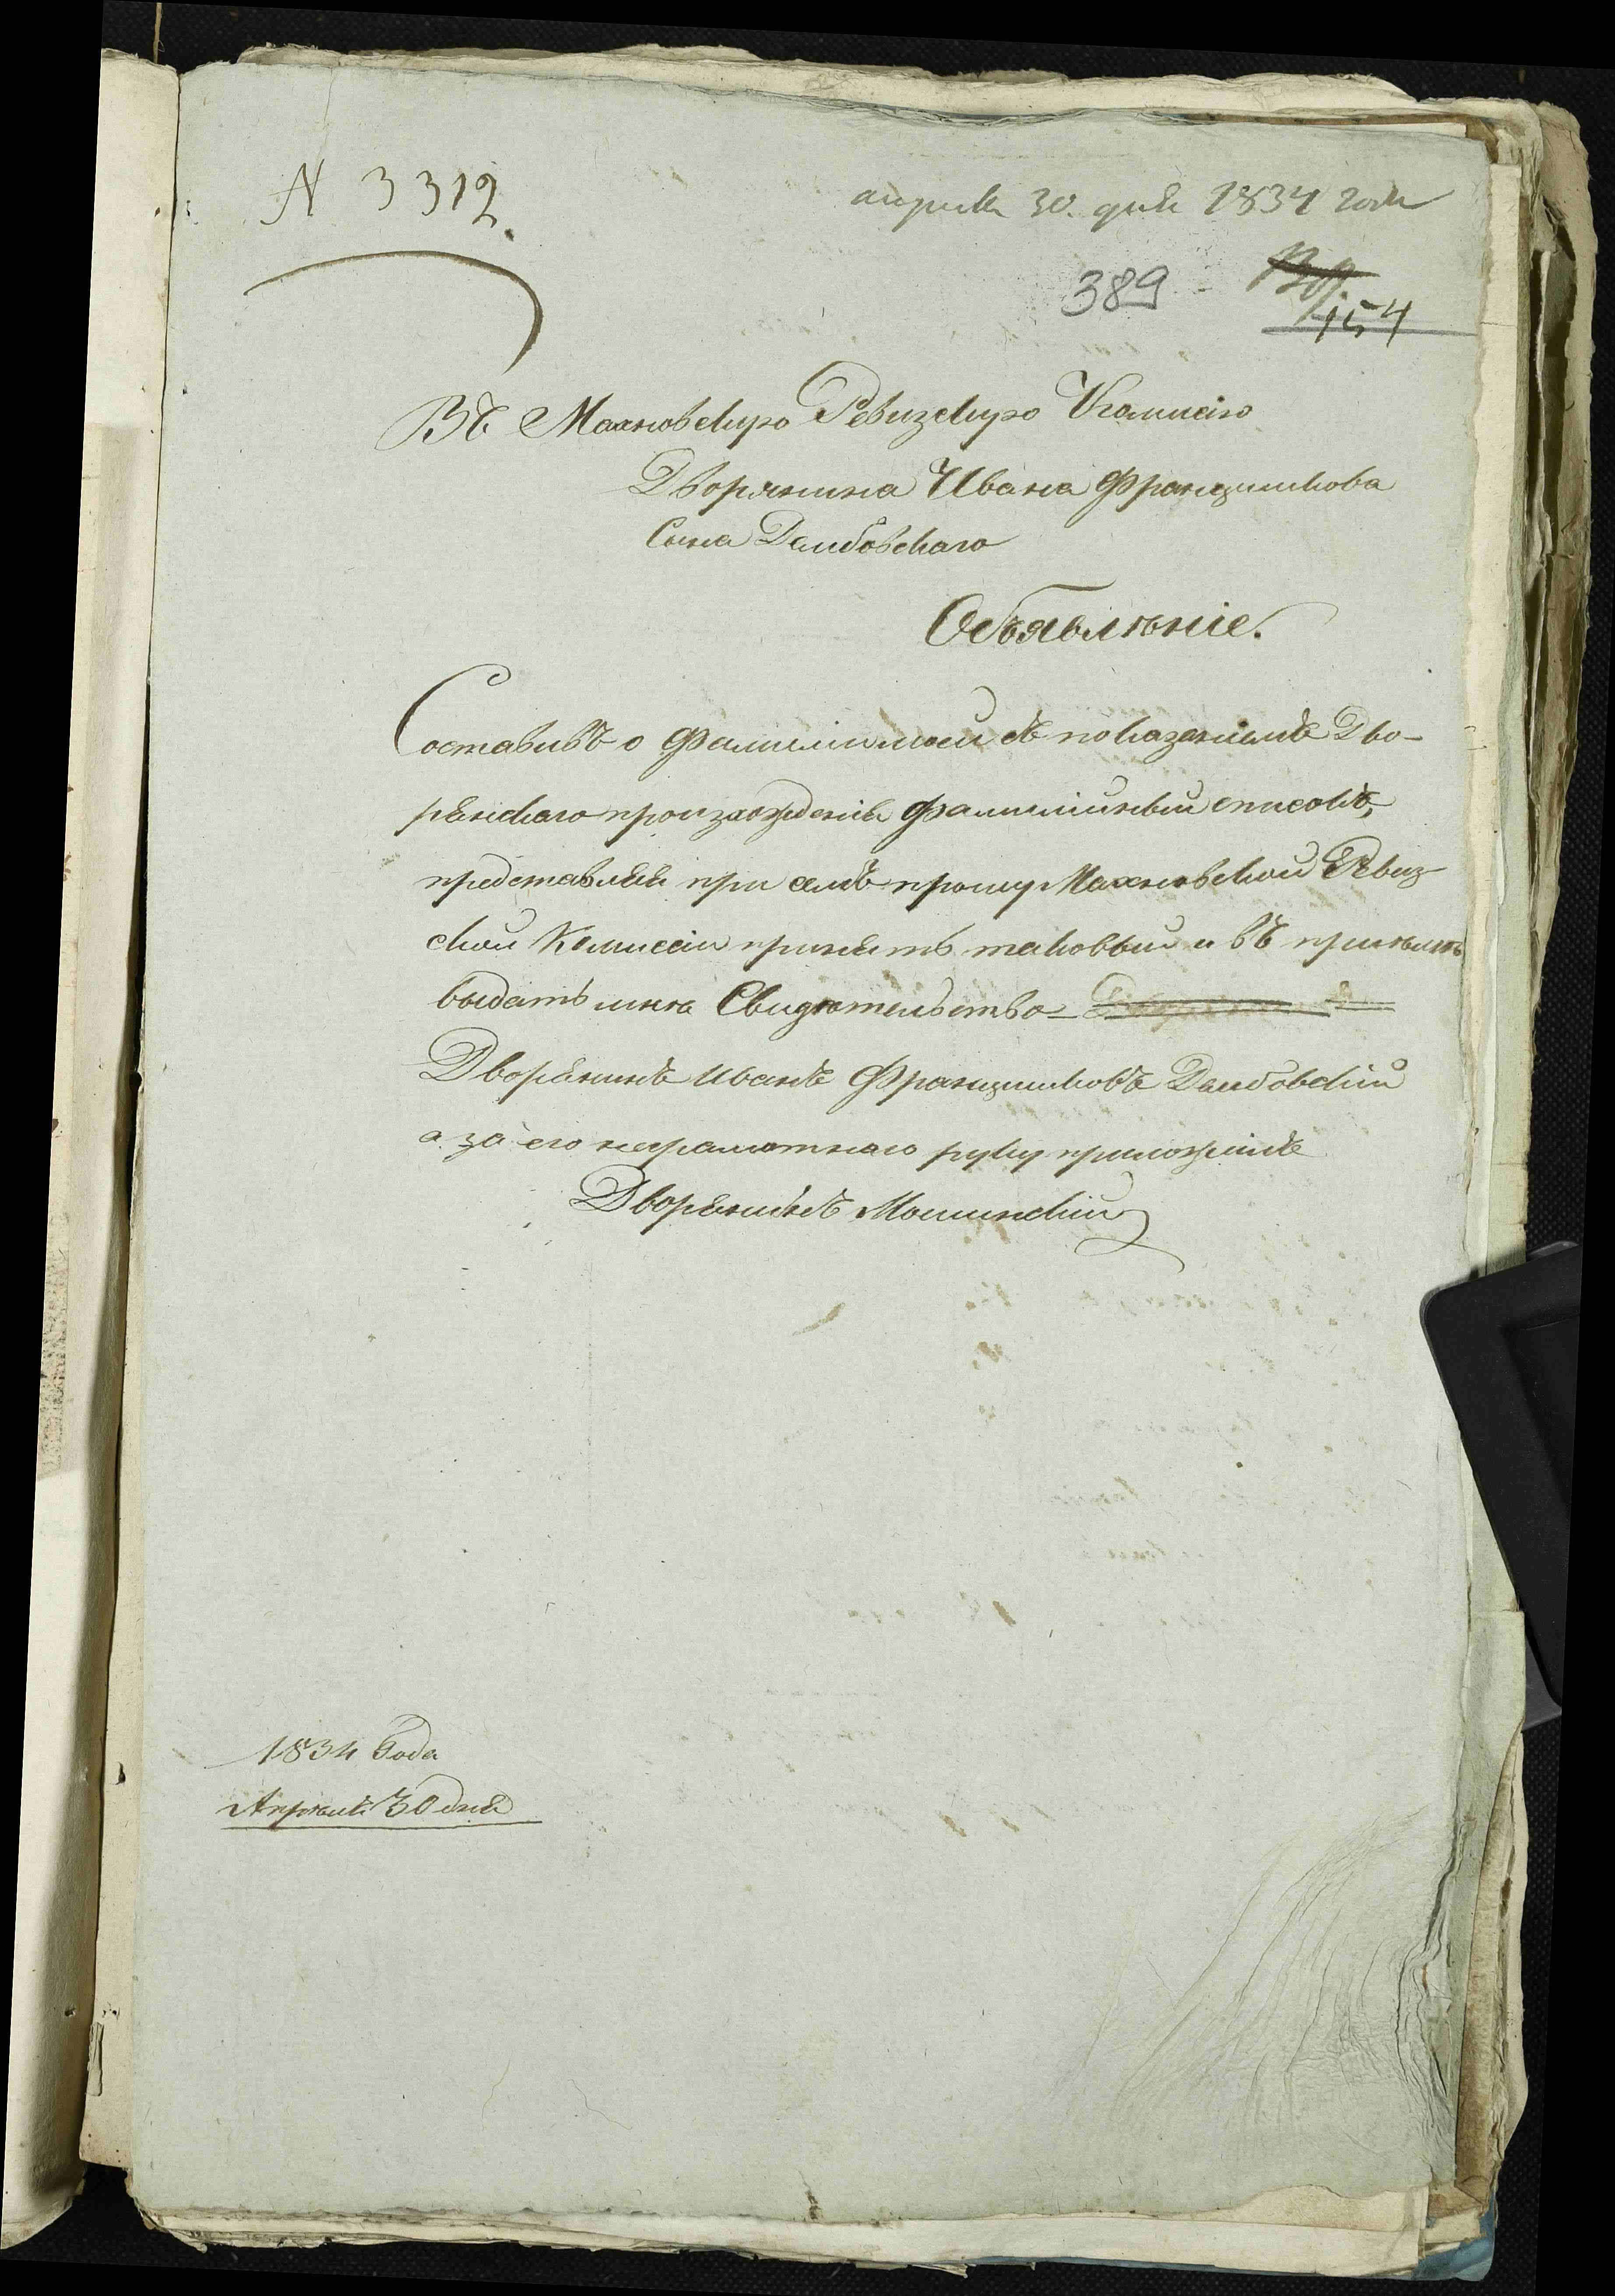 N 3312.
апреля 30. дня 1834 года
389
154
Въ Махновскую Ревизскую Комисію
Дворянина Ивана Францишкова
Сына Дамбовскаго
Объявлѣніе.
Составивъ о Фамиліи моей съ показаніемъ Дво-
рянскаго произхожденія Фамилійный списокъ,
представляя при семъ прошу Махновской Ревиз-
ской Комисіи принять таковый и въ принятіи
выдать мнѣ Свидѣтельство
Дворянинъ Иванъ Францишковъ Дамбовскій
а за его неграмотнаго руку приложилъ
Дворянинъ Мошинскій
1834 Года
Апрѣля 30 дня